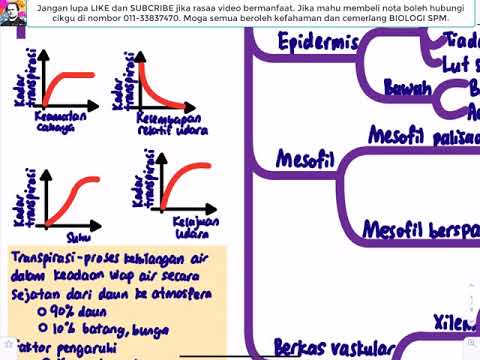 Jangan lupa LIKE dan SUBCRIBE jika rasaa video bermanfaat. Jika mahu membeli nota boleh hubungi
cikgu di nombor 011-33837470. Moga semua beroleh kefahaman dan cemerlang BIOLOGI SPM.
Kadar transpirasi
Keamatan
cahaya
Kadar transpirasi
Kelembapan
relatif udara
Kadar transpirasi
Suhu
Kadar transpirasi
Kelajuan
Udara
Transpirasi-proses kehilangan air
dalam keadaan wap air secara
sejatan dari daun ke atmosfera
90% daun
10% batang, bunga
Faktor pengaruhi
Epidermis
Tiada
Lut s
Bawah
B
Mesofil
Mesofil palisa
Mesofil berspa
Berkas vaskular
Xilem